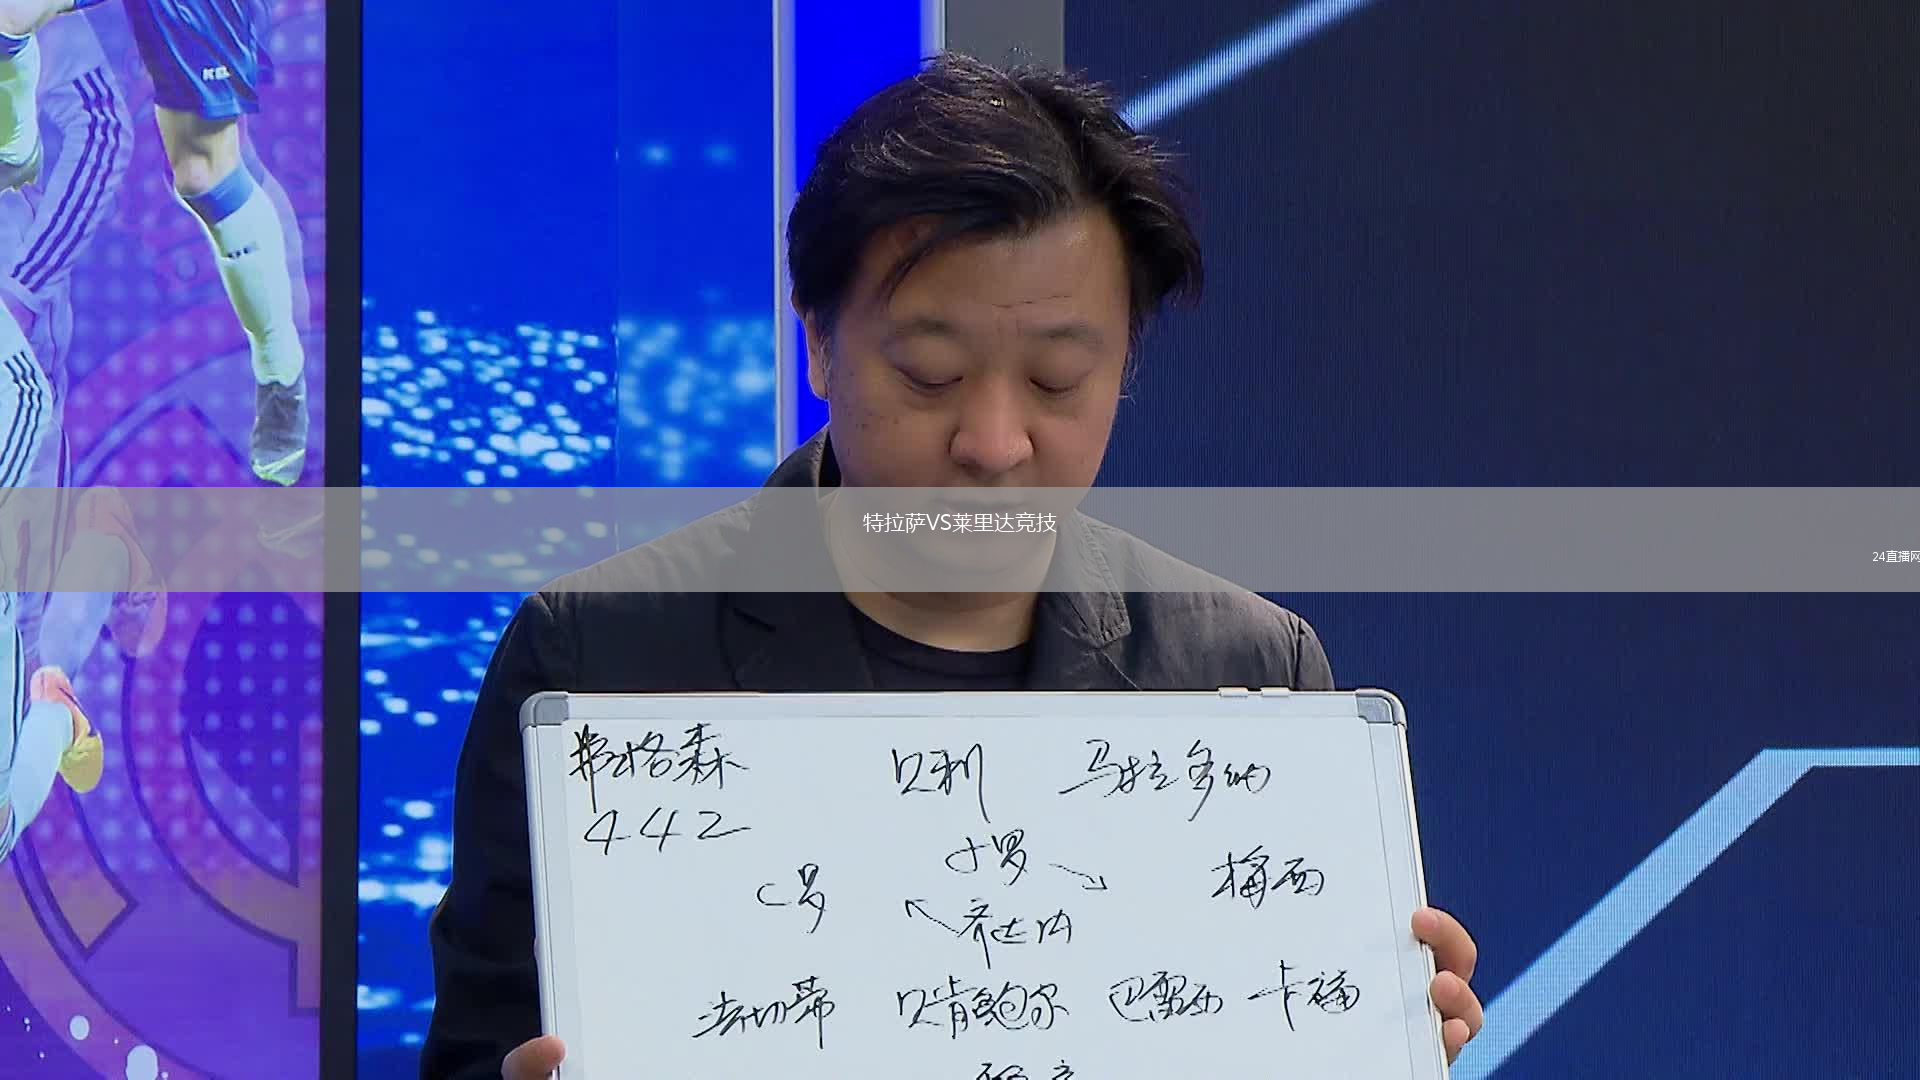 特拉萨VS莱里达竞技
24直播网
弗格森 贝利 马拉多纳
442
C罗 小罗 梅西
齐达内
法切蒂 贝肯鲍尔 巴雷西 卡福